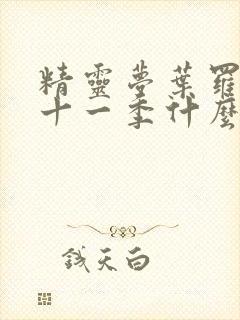 精靈夢葉羅
十一季什麼
錢天白